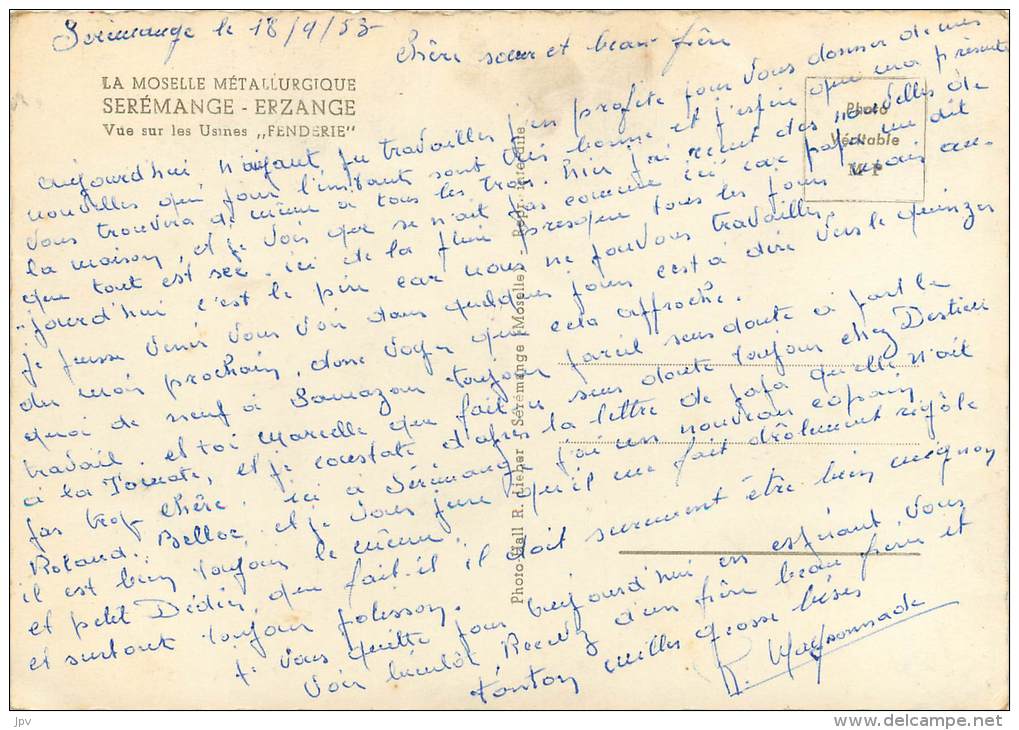 Serémange le 18/9/53
Chère sœur et beau-frère
LA MOSELLE MÉTALLURGIQUE
SERÉMANGE - ERZANGE
Vue sur les Usines „FENDERIE"
Photo
Véritable
aujourd'hui n'aiyant pu travailler j'en profite pour vous donner de mes
nouvelles qui pour l'instant sont très bonne et j'espère que ma présente
vous trouvera de même à tous les trois. Hier j'ai recut des nouvelles de
la maison, et je vois que se n'ait pas comme ici car papa me dit
que tout est sec. ici de la pluie presque tous les jours mais au-
"jourd'hui c'est le pire car nous ne pouvons travailler.
je puisse venir vous voir dans quelques jours c'est à dire vers le quinze
du mois prochain, donc voyez que cela approche.
quoi de neuf à Samazan toujour pareil sans doute à part le
travail. et toi Marcelle que fait tu sans doute toujour chez Destieu
à la Tomate, et je constate d'après la lettre de papa qu'elle n'ait
pas trop chère. ici à Sérémange j'ai un nouveau copain
Roland. Belloc, et je vous jure qu'il me fait drôlement rigôle
il est bien toujour le même.
et petit Dédée, que fait-il il doit surement être bien mignon
et surtout toujour polisson.
je vous quitte pour aujourd'hui en espérant vous
voir bientôt Recevez d'un frère beau frère et
tonton milles grosse bises
R. Mayonnade
Photo-Hall R. Lieber Sérémange (Moselle) - Repr. interdite